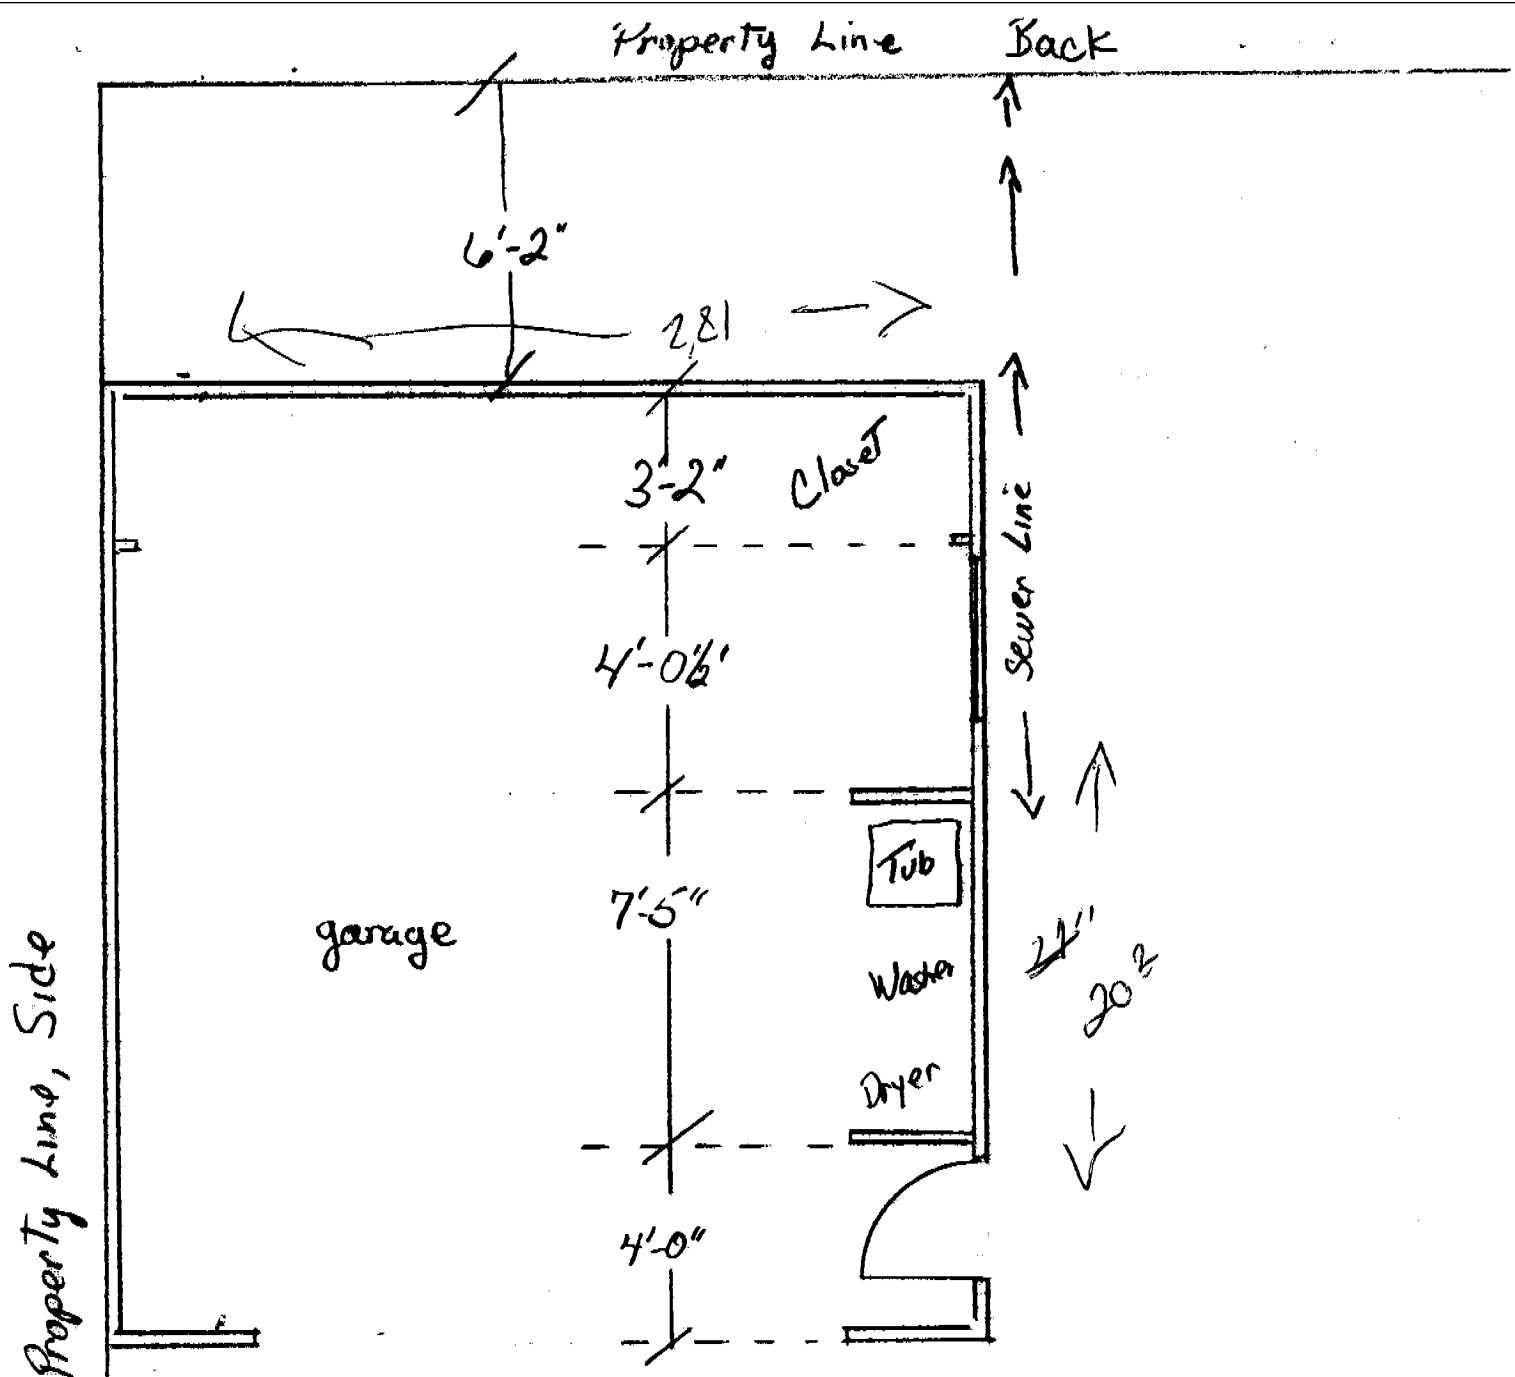 Property Line Back
6'-2"
2,81
3'-2"
Closet
4'-0½'
Sewer Line
Tub
7'-5"
garage
Washer
21"
20²
Dryer
Property Line, Side
4'-0"